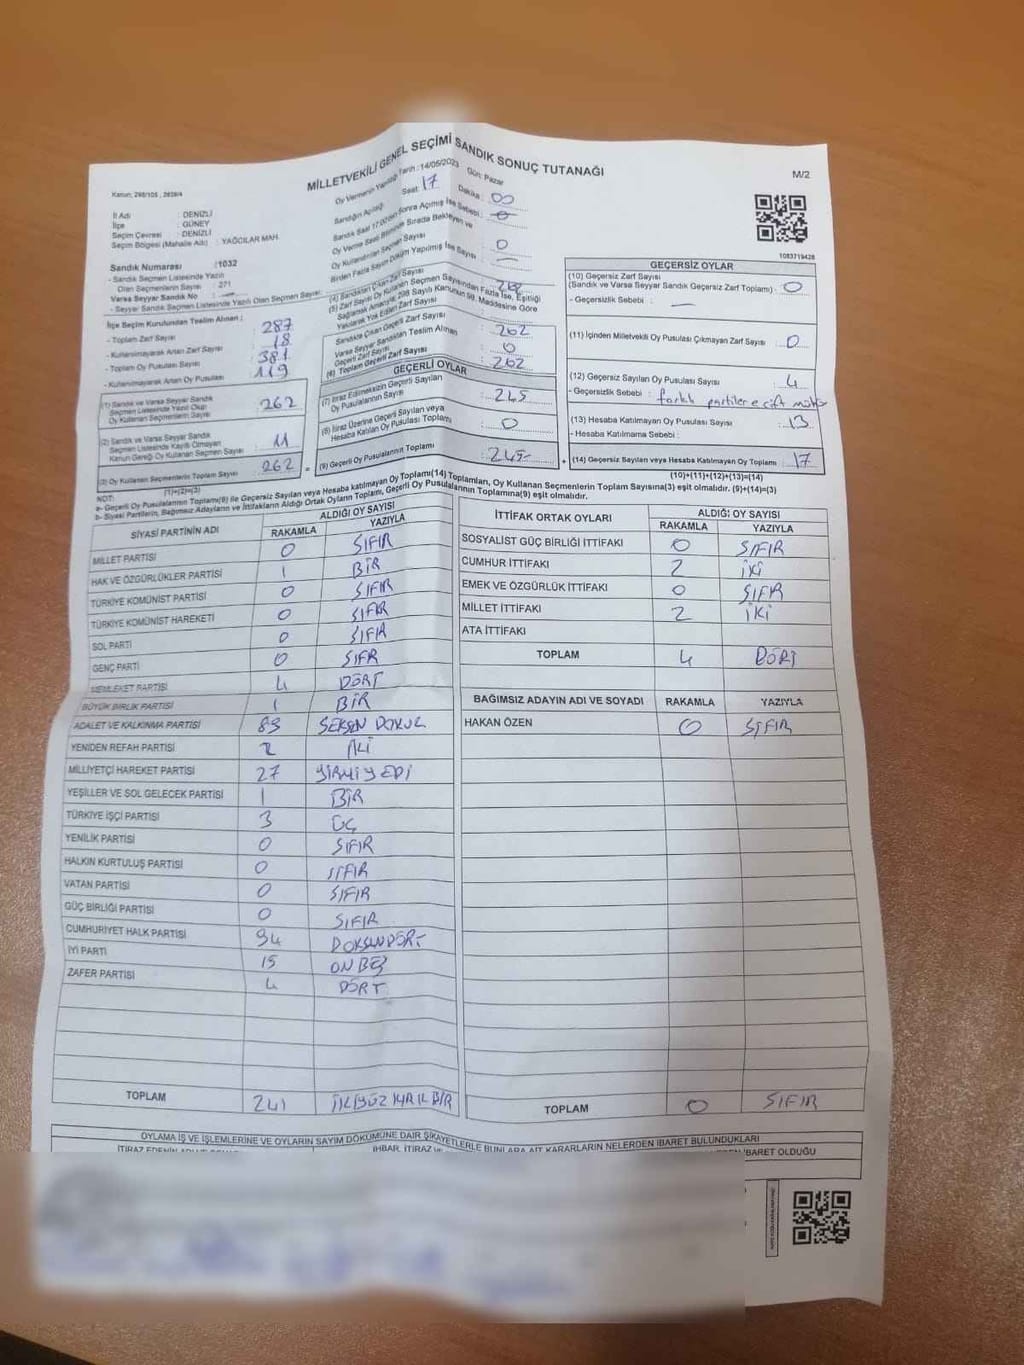 MİLLETVEKİLİ GENEL SEÇİMİ SANDIK SONUÇ TUTANAĞI
M/2
Kanun: 298/105 , 2839/4
İl Adı : DENİZLİ
İlçe : GÜNEY
Seçim Çevresi : DENİZLİ
Seçim Bölgesi (Mahalle Adı) : YAĞCILAR MAH.
Sandık Numarası :1032
- Sandık Seçmen Listesinde Yazılı
Olan Seçmenlerin Sayısı : 271
Varsa Seyyar Sandık No :
- Seyyar Sandık Seçmen Listesinde Yazılı Olan Seçmen Sayısı:
Oy Vermenin Yapıldığı Tarih : 14/05/2023 Gün: Pazar
Sandığın Açıldığı Saat: 17 Dakika : 00
Sandık Saat 17:00'den Sonra Açılmış İse Sebebi :
Oy Verme Saati Bitiminde Sırada Bekleyen ve
Oy Kullandırılan Seçmen Sayısı : 0
Birden Fazla Sayım Döküm Yapılmış İse Sayısı :
1083719428
İlçe Seçim Kurulundan Teslim Alınan ;
- Toplam Zarf Sayısı : 287
- Kullanılmayarak Artan Zarf Sayısı : 18
- Toplam Oy Pusulası Sayısı : 381
- Kullanılmayarak Artan Oy Pusulası : 119
(1) Sandık ve Varsa Seyyar Sandık
Seçmen Listesinde Yazılı Olup
Oy Kullanan Seçmenlerin Sayısı : 262
(2) Sandık ve Varsa Seyyar Sandık
Seçmen Listesinde Kayıtlı Olmayan
Kanun Gereği Oy Kullanan Seçmen Sayısı : 11
(3) Oy Kullanan Seçmenlerin Toplam Sayısı : 262
(1)+(2)=(3)
(4) Sandıktan Çıkan Zarf Sayısı : 262
(5) Zarf Sayısı Oy Kullanan Seçmen Sayısından Fazla İse, Eşitliği
Sağlamak Amacıyla, 298 Sayılı Kanunun 98. Maddesine Göre
Yakılarak Yok Edilen Zarf Sayısı
Sandıktan Çıkan Geçerli Zarf Sayısı : 262
Varsa Seyyar Sandıktan Teslim Alınan
Geçerli Zarf Sayısı : 0
(6) Toplam Geçerli Zarf Sayısı : 262
GEÇERLİ OYLAR
(7) İtiraz Edilmeksizin Geçerli Sayılan
Oy Pusulalarının Sayısı : 245
(8) İtiraz Üzerine Geçerli Sayılan veya
Hesaba Katılan Oy Pusulası Toplamı : 0
(9) Geçerli Oy Pusulalarının Toplamı : 245
GEÇERSİZ OYLAR
(10) Geçersiz Zarf Sayısı
(Sandık ve Varsa Seyyar Sandık Geçersiz Zarf Toplamı) : 0
- Geçersizlik Sebebi :
(11) İçinden Milletvekili Oy Pusulası Çıkmayan Zarf Sayısı : 0
(12) Geçersiz Sayılan Oy Pusulası Sayısı : 4
- Geçersizlik Sebebi : farklı partilere çift mühür
(13) Hesaba Katılmayan Oy Pusulası Sayısı : 13
- Hesaba Katılmama Sebebi :
(14) Geçersiz Sayılan veya Hesaba Katılmayan Oy Toplamı : 17
(10)+(11)+(12)+(13)=(14)
NOT:
a- Geçerli Oy Pusulalarının Toplamı(9) ile Geçersiz Sayılan veya Hesaba Katılmayan Oy Toplamı(14) Toplamları, Oy Kullanan Seçmenlerin Toplam Sayısına(3) eşit olmalıdır. (9)+(14)=(3)
b- Siyasi Partilerin, Bağımsız Adayların ve İttifakların Aldığı Ortak Oyların Toplamı, Geçerli Oy Pusulalarının Toplamına(9) eşit olmalıdır.
SİYASİ PARTİNİN ADI ALDIĞI OY SAYISI
RAKAMLA YAZIYLA
MİLLET PARTİSİ 0 SIFIR
HAK VE ÖZGÜRLÜKLER PARTİSİ 1 BİR
TÜRKİYE KOMÜNİST PARTİSİ 0 SIFIR
TÜRKİYE KOMÜNİST HAREKETİ 0 SIFIR
SOL PARTİ 0 SIFIR
GENÇ PARTİ 0 SIFR
MEMLEKET PARTİSİ 4 DÖRT
BÜYÜK BİRLİK PARTİSİ 1 BİR
ADALET VE KALKINMA PARTİSİ 89 SEKSEN DOKUZ
YENİDEN REFAH PARTİSİ 2 İKİ
MİLLİYETÇİ HAREKET PARTİSİ 27 YİRMİ YEDİ
YEŞİLLER VE SOL GELECEK PARTİSİ 1 BİR
TÜRKİYE İŞÇİ PARTİSİ 3 ÜÇ
YENİLİK PARTİSİ 0 SIFIR
HALKIN KURTULUŞ PARTİSİ 0 SIFIR
VATAN PARTİSİ 0 SIFIR
GÜÇ BİRLİĞİ PARTİSİ 0 SIFIR
CUMHURİYET HALK PARTİSİ 94 DOKSANDÖRT
İYİ PARTİ 15 ON BEŞ
ZAFER PARTİSİ 4 DÖRT
TOPLAM 241 İKİYÜZ KIRK BİR
İTTİFAK ORTAK OYLARI ALDIĞI OY SAYISI
RAKAMLA YAZIYLA
SOSYALİST GÜÇ BİRLİĞİ İTTİFAKI 0 SIFIR
CUMHUR İTTİFAKI 2 İKİ
EMEK VE ÖZGÜRLÜK İTTİFAKI 0 SIFIR
MİLLET İTTİFAKI 2 İKİ
ATA İTTİFAKI
TOPLAM 4 DÖRT
BAĞIMSIZ ADAYIN ADI VE SOYADI RAKAMLA YAZIYLA
HAKAN ÖZEN 0 SIFIR
TOPLAM 0 SIFIR
OYLAMA İŞ VE İŞLEMLERİNE VE OYLARIN SAYIM DÖKÜMÜNE DAİR ŞİKAYETLERLE BUNLARA AİT KARARLARIN NELERDEN İBARET BULUNDUKLARI